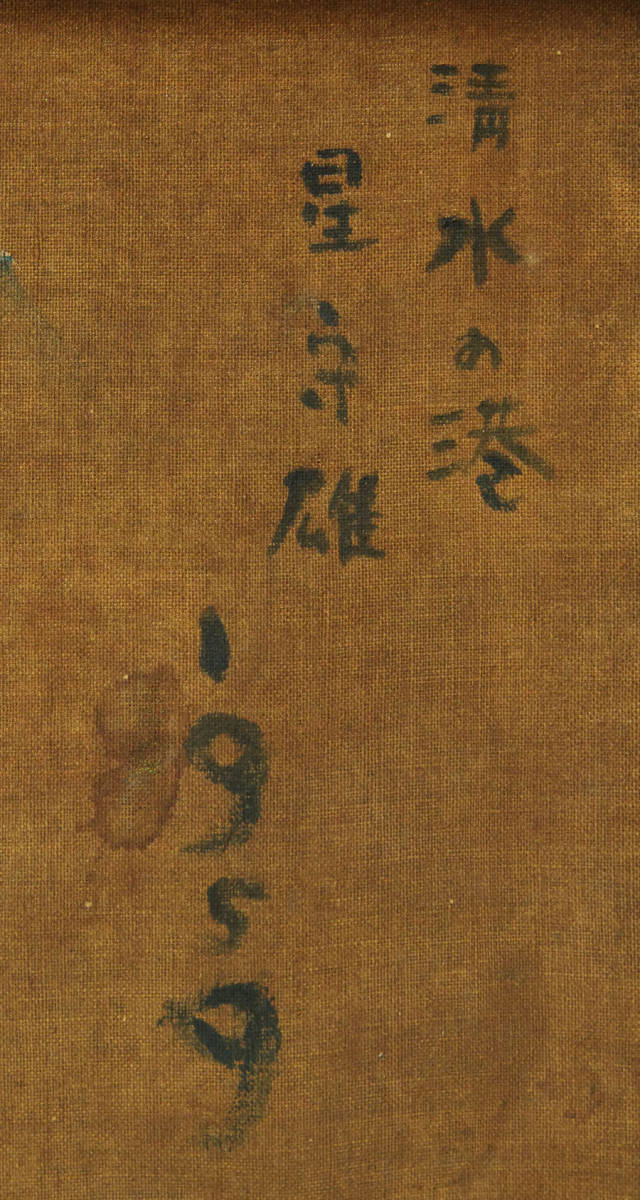 清水の港
星守雄
1959